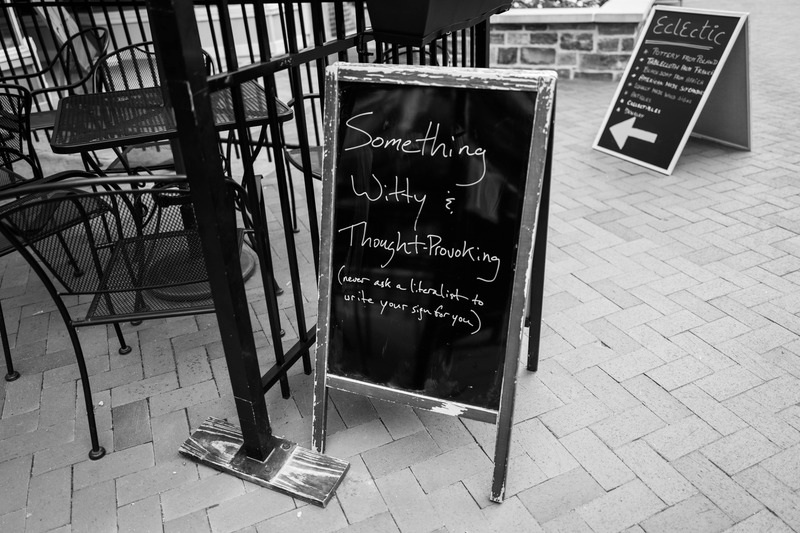 Something
Witty &
Thought-Provoking
(never ask a literalist to
write your sign for you)
Eclectic
Pottery from Poland
Antiques
Collectibles
Jewelry